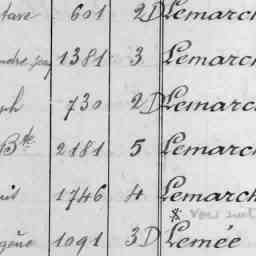 tave 601 2D Lemarch
1381 3 Lemarch
ph 730 2D Lemarch
Bte 2181 5 Lemarch
1746 4 Lemarch
* voir
1091 3D Lemée